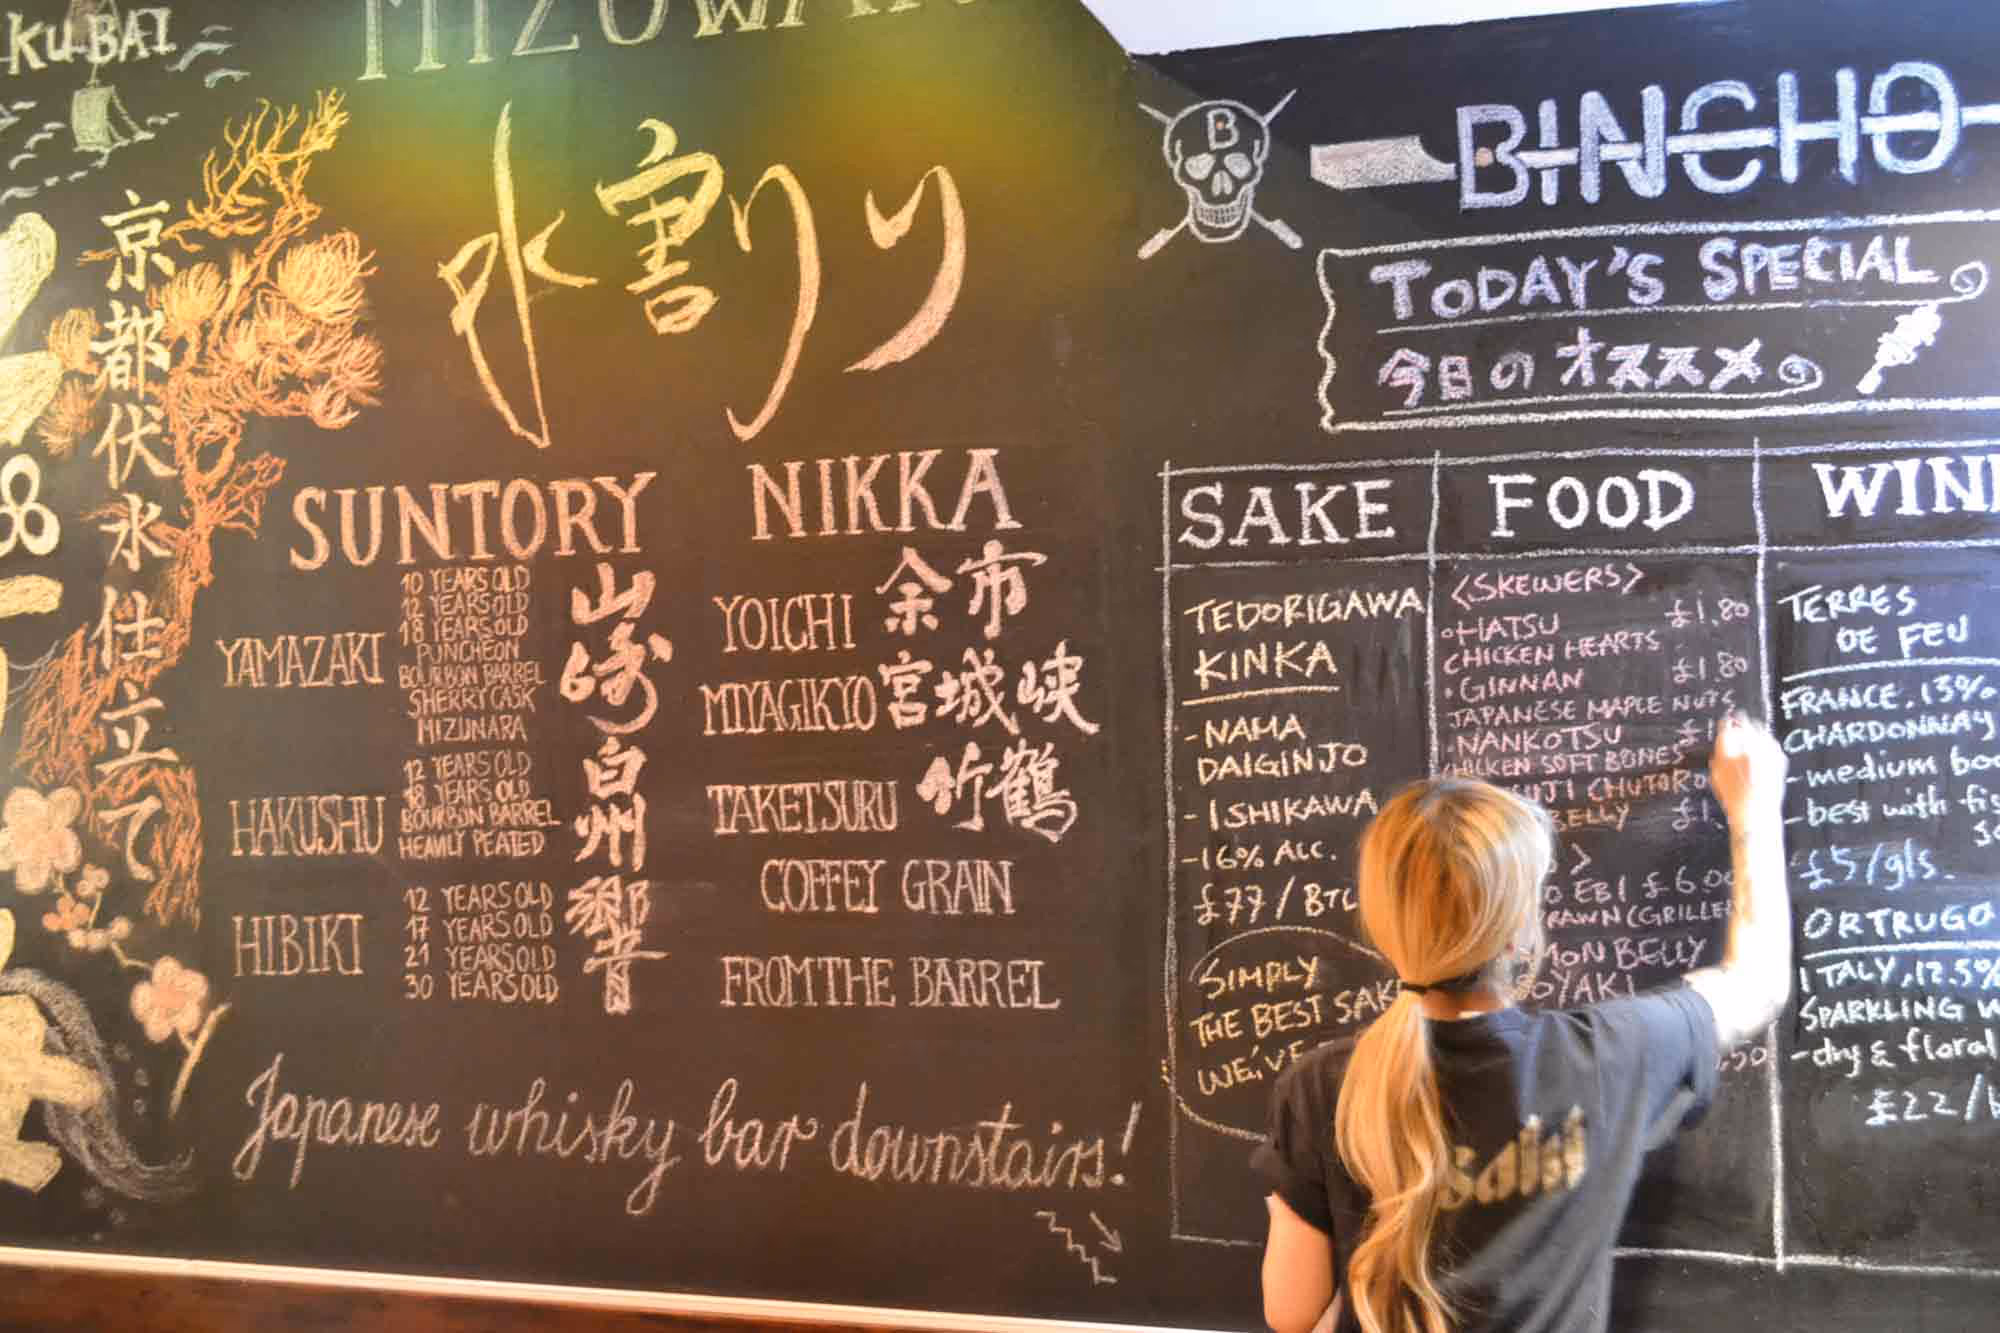 KU BAI
MIZUWARI
水割り
京都伏水仕立て
SUNTORY
YAMAZAKI
10 YEARS OLD
12 YEARS OLD
18 YEARS OLD
PUNCHEON
BOURBON BARREL
SHERRY CASK
MIZUNARA
山崎
HAKUSHU
12 YEARS OLD
18 YEARS OLD
BOURBON BARREL
HEAVILY PEATED
白州
HIBIKI
12 YEARS OLD
17 YEARS OLD
21 YEARS OLD
30 YEARS OLD
響
NIKKA
YOICHI 余市
MIYAGIKYO 宮城峡
TAKETSURU 竹鶴
COFFEY GRAIN
FROM THE BARREL
Japanese whisky bar downstairs!
B
BINCHO
TODAY'S SPECIAL
今日のオススメ
SAKE
TEDORIGAWA
KINKA
-NAMA
DAIGINJO
-ISHIKAWA
-16% ALC.
£77/BTL
SIMPLY
THE BEST SAKE
WE'VE
FOOD
<SKEWERS>
•HATSU £1.80
CHICKEN HEARTS
•GINNAN £1.80
JAPANESE MAPLE NUTS
•NANKOTSU
CHICKEN SOFT BONES
UJI CHUTORO
BELLY £1.
>
EBI £6.00
PRAWN (GRILLED
MON BELLY
OYAKI
.50
WINE
TERRES
DE FEU
FRANCE, 13%
CHARDONNAY
-medium
-best with
£5/gls.
ORTRUGO
ITALY, 12.5%
SPARKLING
-dry & floral
£22/b
Asahi